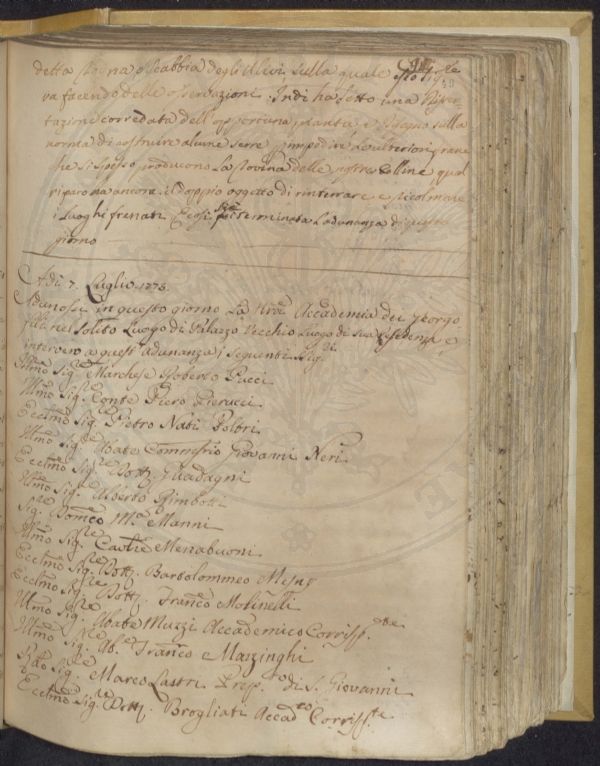 detta Rogna o scabbia degli Ulivi sulla quale
va facendo delle osservazioni. Indi ha letto una Disser-
tazione corredata dell'opportuna pianta e disegno sulla
norma di costruire alcune serre p impedire le ulteriori frane
che si spesso producono la rovina delle nostre Colline qual
riparo ha ancora il doppio oggetto di rinterrare e ricolmare
i Luoghi frenati. E così fu terminata l'adunanza di questo
giorno
Adì 7. Luglio 1773.
Adunossi in questo giorno la Nrã Accademia dei Georgo
fili nel solito Luogo di Palazzo Vecchio Luogo di sua Residenza, e
intervenero a quest'adunanza i seguenti Sig.ri
Illmo Sig.re Marchese Roberto Pucci
Illmo Sig.re Conte Piero Pierucci
Eccmo Sig.re Pietro Nati Poltri
Illmo Sig.re Abate Commess̃rio Giovanni Neri
Eccmo Sig.re Dott. Guadagni
Illmo Sig.re Uberto Rimbotti
Sig.re Domco Ma Manni
Illmo Sig.re Cavre Menabuoni
Eccmo Sig.re Dott. Bartolommeo Mesny
Eccmo Sig.re Dott. Franco Molinelli
Illmo Sig.re Abate Muzzi Accademico Corrisp.te
Illmo Sig.re Ab.e Franco Marzinghi
Rdo Sig.re Marco Lastri Prep.to di S. Giovanni
Eccmo Sig.re Dott. Brogliati Accad.co Corrisp.te